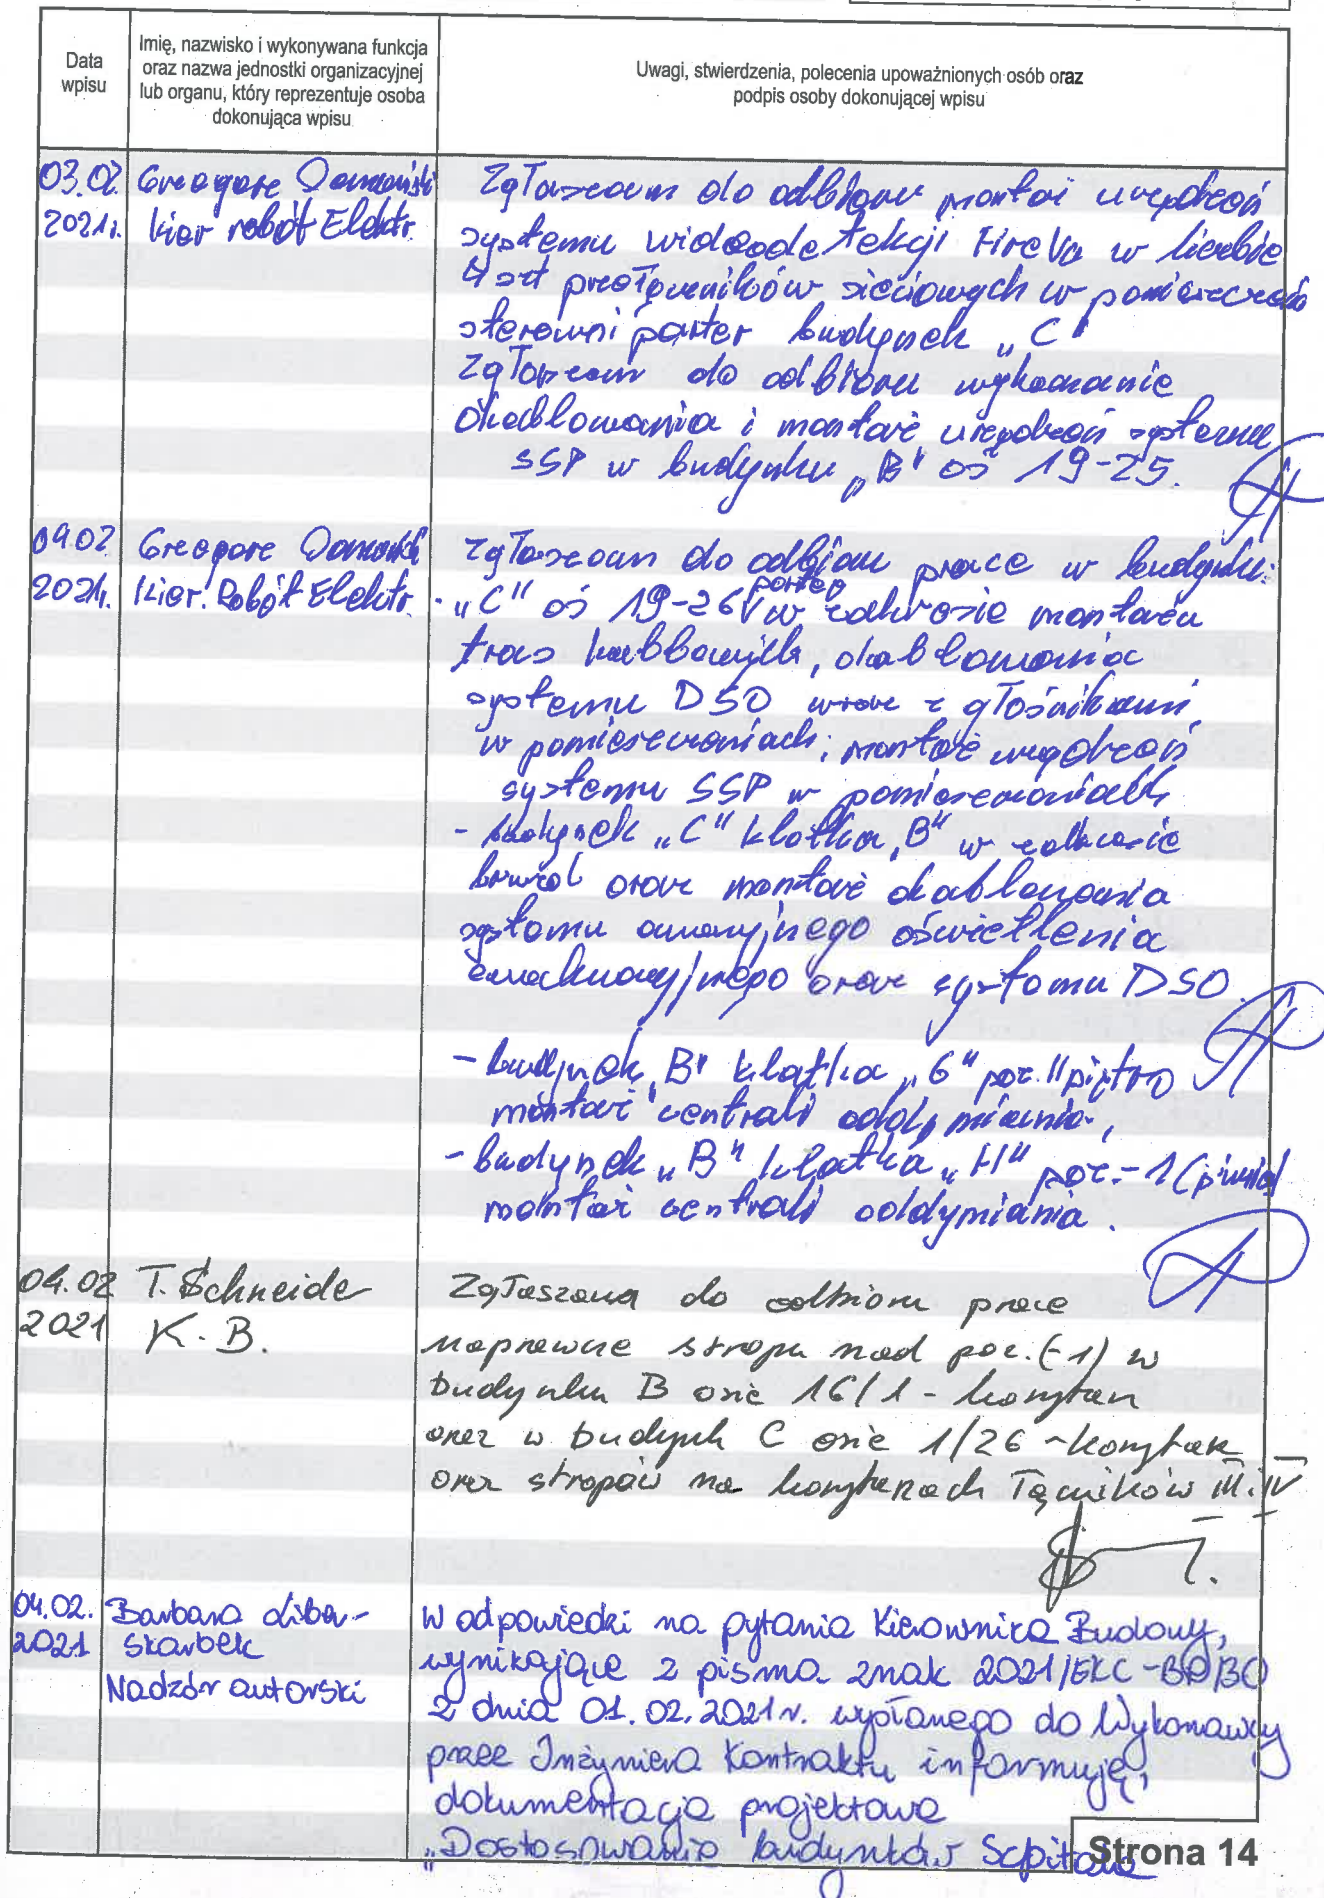 Data
wpisu
Imię, nazwisko i wykonywana funkcja
oraz nazwa jednostki organizacyjnej
lub organu, który reprezentuje osoba
dokonująca wpisu
Uwagi, stwierdzenia, polecenia upoważnionych osób oraz
podpis osoby dokonującej wpisu
03.02.
2021r.
Grzegorz Domański
kier robót Elektr.
Zgłaszam do odbioru montaż urządzeń
systemu wideodetekcji FireVu w liczbie
4 szt przełączników sieciowych w pomieszczeniu
sterowni parter budynek „C"
Zgłaszam do odbioru wykonanie
okablowania i montaż urządzeń systemu
SSP w budynku „B" oś 19-25.
0902
2021r.
Grzegorz Domański
Kier. Robót Elektr.
Zgłaszam do odbioru prace w budynku:
- „C" oś 19-26 parter w zakresie montażu
tras kablowych, okablowania
systemu DSO wraz z głośnikami
w pomieszczeniach; montaż urządzeń
systemu SSP w pomieszczeniach
- budynek „C" klatka „B" w zakresie
oraz montaż okablowania
systemu awaryjnego oświetlenia
ewakuacyjnego oraz systemu DSO.
- budynek „B" klatka „G" poz. II piętro
montaż centrali oddymiania,
- budynek „B" klatka „H" poz. -1 (piwnica)
montaż centrali oddymiania.
04.02
2021
T. Schneider
K. B.
Zgłaszam do odbioru prace
naprawcze stropu nad poz. (-1) w
budynku B osie 16/1 - korytarz
oraz w budynk C osie 1/26 - korytarz
oraz stropów na korytarzach łączników III i IV
04.02.
2021
Barbara Liber-
Skarbek
Nadzór autorski
W odpowiedzi na pytania Kierownika Budowy,
wynikające z pisma znak 2021/EKC-BP/BO
z dnia 01.02.2021r. wysłanego do Wykonawcy
przez Inżyniera Kontraktu informuję,
dokumentacja projektowa
„Dostosowanie budynków Szpitala
Strona 14